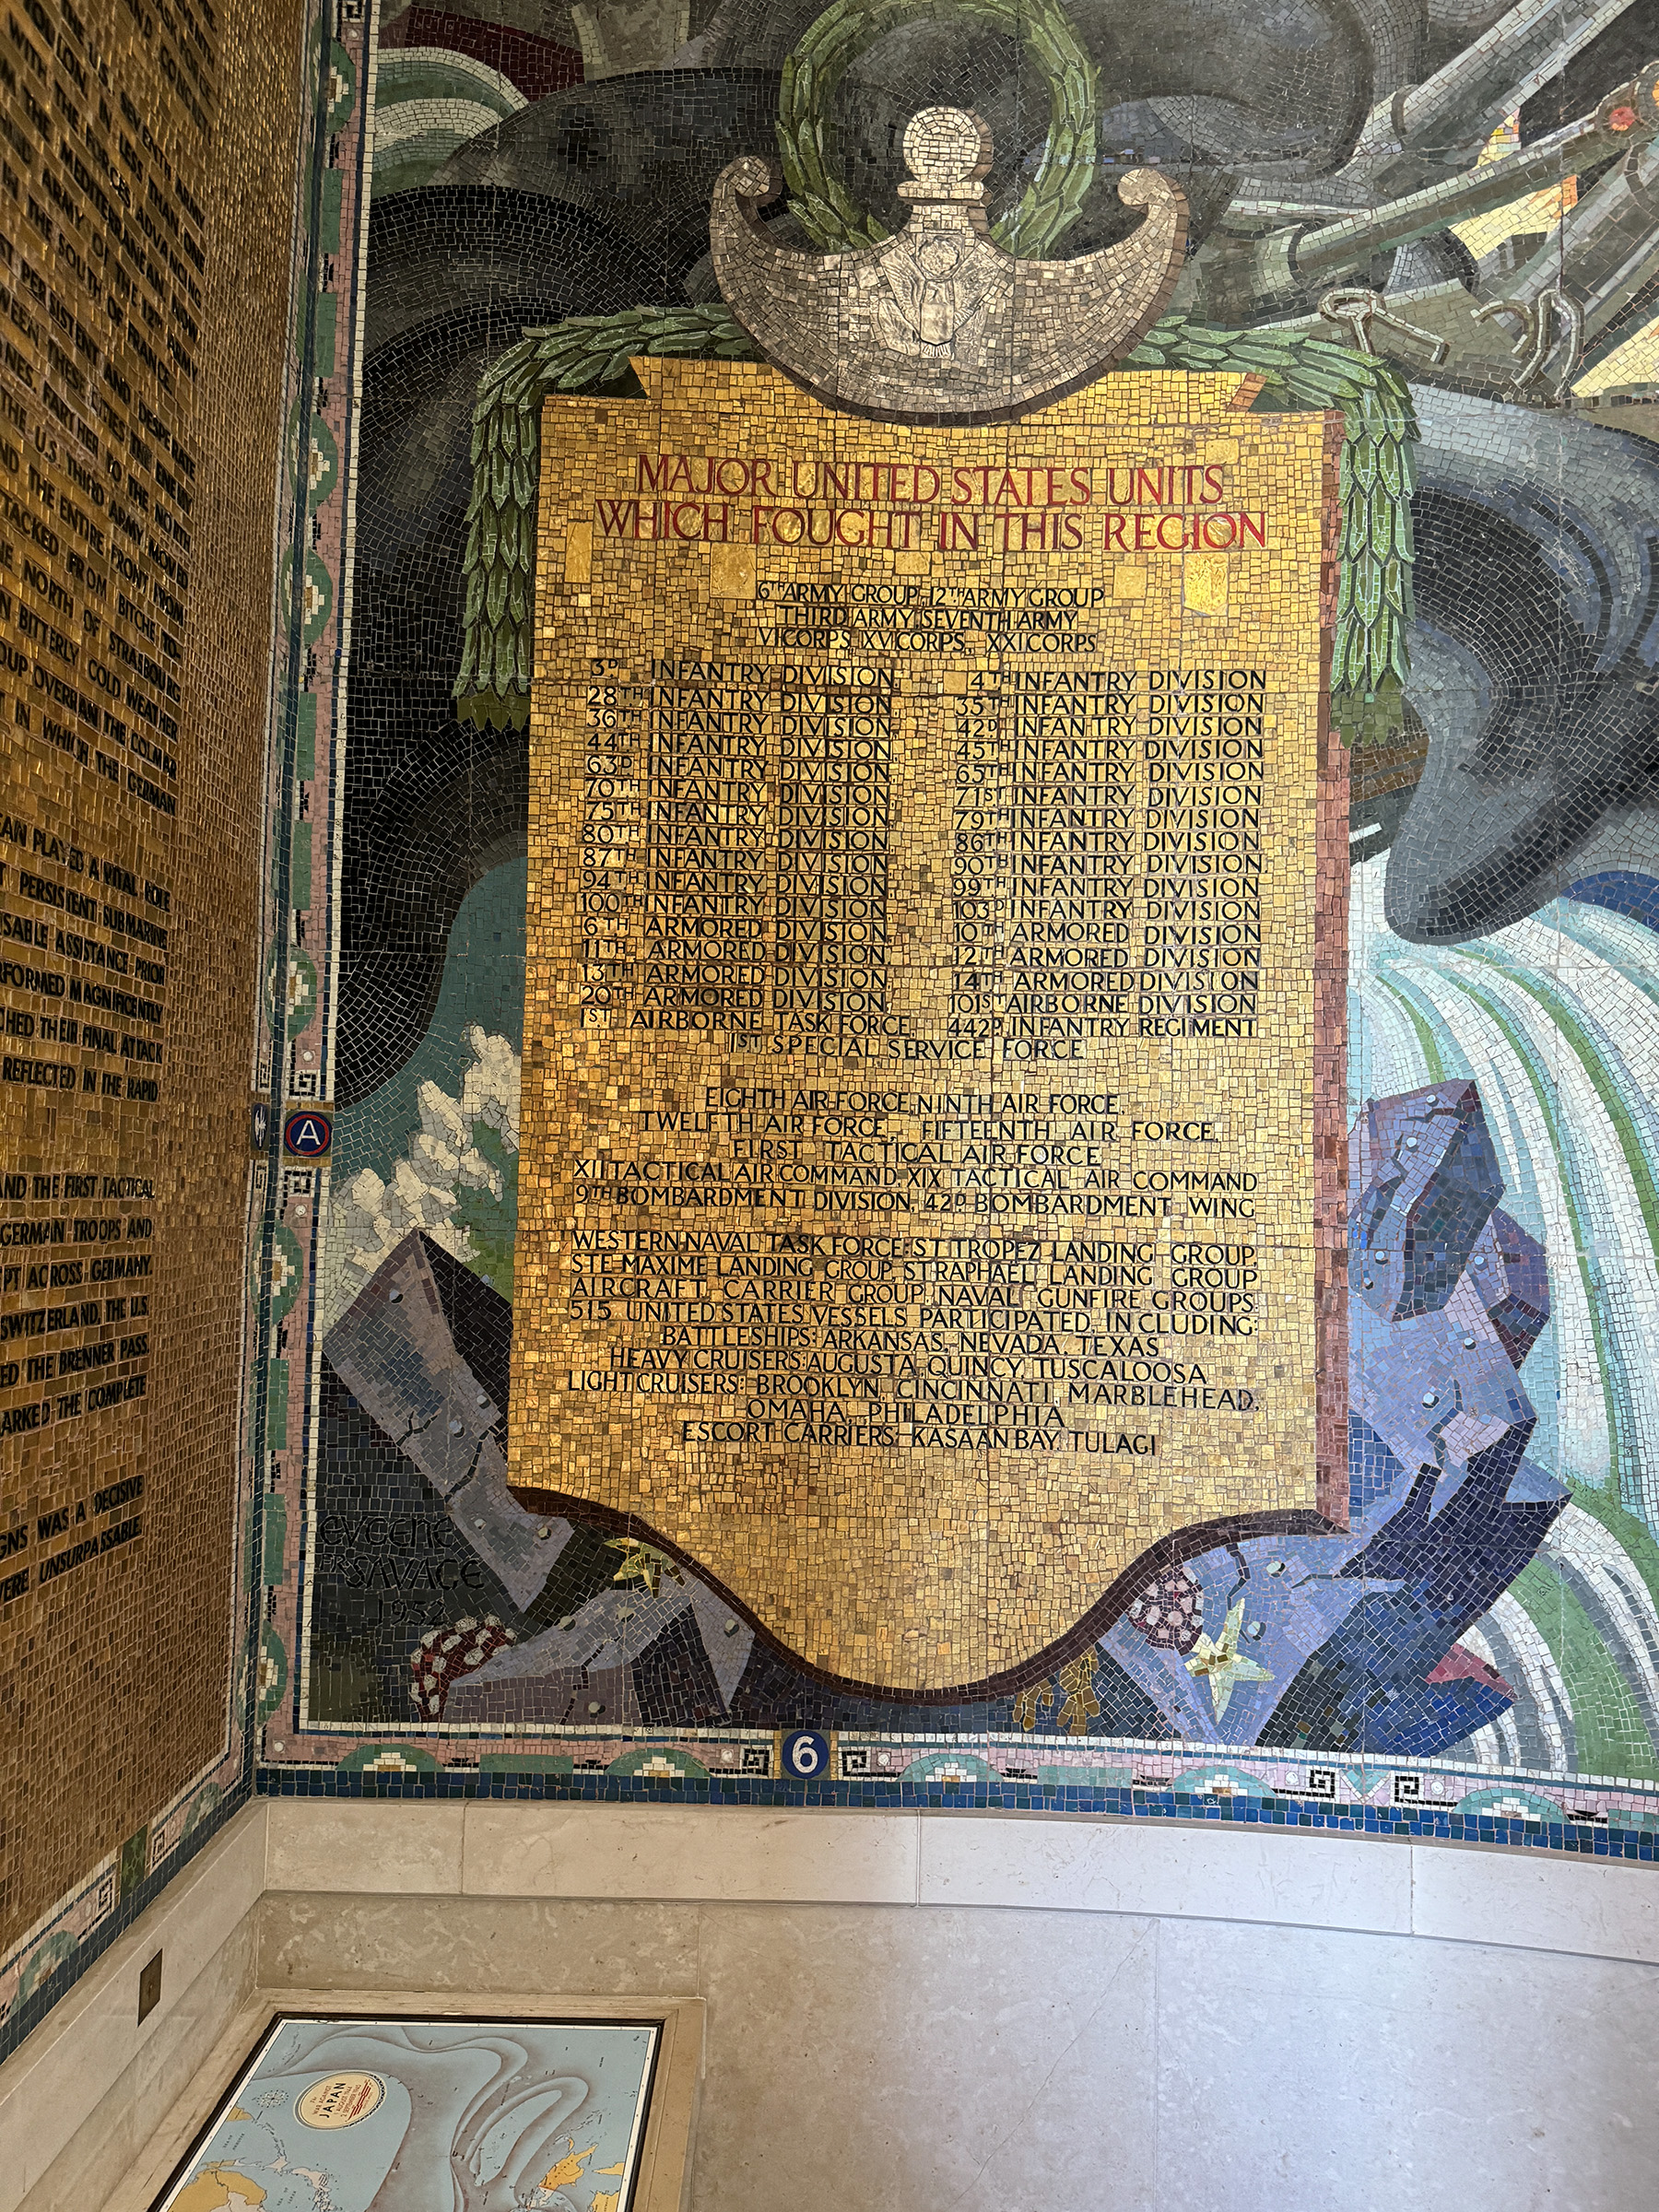 MAJOR UNITED STATES UNITS
WHICH FOUGHT IN THIS REGION
6TH ARMY GROUP, 12TH ARMY GROUP
THIRD ARMY, SEVENTH ARMY
VI CORPS, XV CORPS, XXI CORPS
3D INFANTRY DIVISION 4TH INFANTRY DIVISION
28TH INFANTRY DIVISION 35TH INFANTRY DIVISION
36TH INFANTRY DIVISION 42D INFANTRY DIVISION
44TH INFANTRY DIVISION 45TH INFANTRY DIVISION
63D INFANTRY DIVISION 65TH INFANTRY DIVISION
70TH INFANTRY DIVISION 71ST INFANTRY DIVISION
75TH INFANTRY DIVISION 79TH INFANTRY DIVISION
80TH INFANTRY DIVISION 86TH INFANTRY DIVISION
87TH INFANTRY DIVISION 90TH INFANTRY DIVISION
94TH INFANTRY DIVISION 99TH INFANTRY DIVISION
100TH INFANTRY DIVISION 103D INFANTRY DIVISION
6TH ARMORED DIVISION 10TH ARMORED DIVISION
11TH ARMORED DIVISION 12TH ARMORED DIVISION
13TH ARMORED DIVISION 14TH ARMORED DIVISION
20TH ARMORED DIVISION 101ST AIRBORNE DIVISION
1ST AIRBORNE TASK FORCE, 442D INFANTRY REGIMENT
1ST SPECIAL SERVICE FORCE
EIGHTH AIR FORCE, NINTH AIR FORCE,
TWELFTH AIR FORCE, FIFTEENTH AIR FORCE,
FIRST TACTICAL AIR FORCE
XII TACTICAL AIR COMMAND, XIX TACTICAL AIR COMMAND
9TH BOMBARDMENT DIVISION, 42D BOMBARDMENT WING
WESTERN NAVAL TASK FORCE: ST TROPEZ LANDING GROUP,
STE MAXIME LANDING GROUP, ST RAPHAEL LANDING GROUP
AIRCRAFT CARRIER GROUP, NAVAL GUNFIRE GROUPS
515 UNITED STATES VESSELS PARTICIPATED, INCLUDING:
BATTLESHIPS: ARKANSAS, NEVADA, TEXAS
HEAVY CRUISERS: AUGUSTA, QUINCY, TUSCALOOSA
LIGHT CRUISERS: BROOKLYN, CINCINNATI, MARBLEHEAD,
OMAHA, PHILADELPHIA
ESCORT CARRIERS: KASAAN BAY, TULAGI
EVGENE
SAVAGE
1952
A
6
IN LESS THAN ONE
FORCES ADVANCING
THE MEDITERRANEAN, NOW
ARMY OF THE 12TH ARMY
THE SOUTH OF FRANCE.
PERSISTENT AND DESPERATE
THESE CITIES THE ENEMY
FARTHER TO THE NORTH
THE U.S. THIRD ARMY MOVED
THE ENTIRE FRONT FROM
FROM BITCHE TO
NORTH OF STRASBOURG
BITTERLY COLD WEATHER
OVERRAN THE COLMAR
IN WHICH THE GERMAN
PLAYED A VITAL ROLE
PERSISTENT SUBMARINE
ASSISTANCE PRIOR
MAGNIFICENTLY
THEIR FINAL ATTACK
REFLECTED IN THE RAPID
AND THE FIRST TACTICAL
GERMAN TROOPS AND
ACROSS GERMANY.
SWITZERLAND, THE U.S.
THE BRENNER PASS.
THE COMPLETE
WAS A DECISIVE
UNSURPASSABLE.
JAPAN